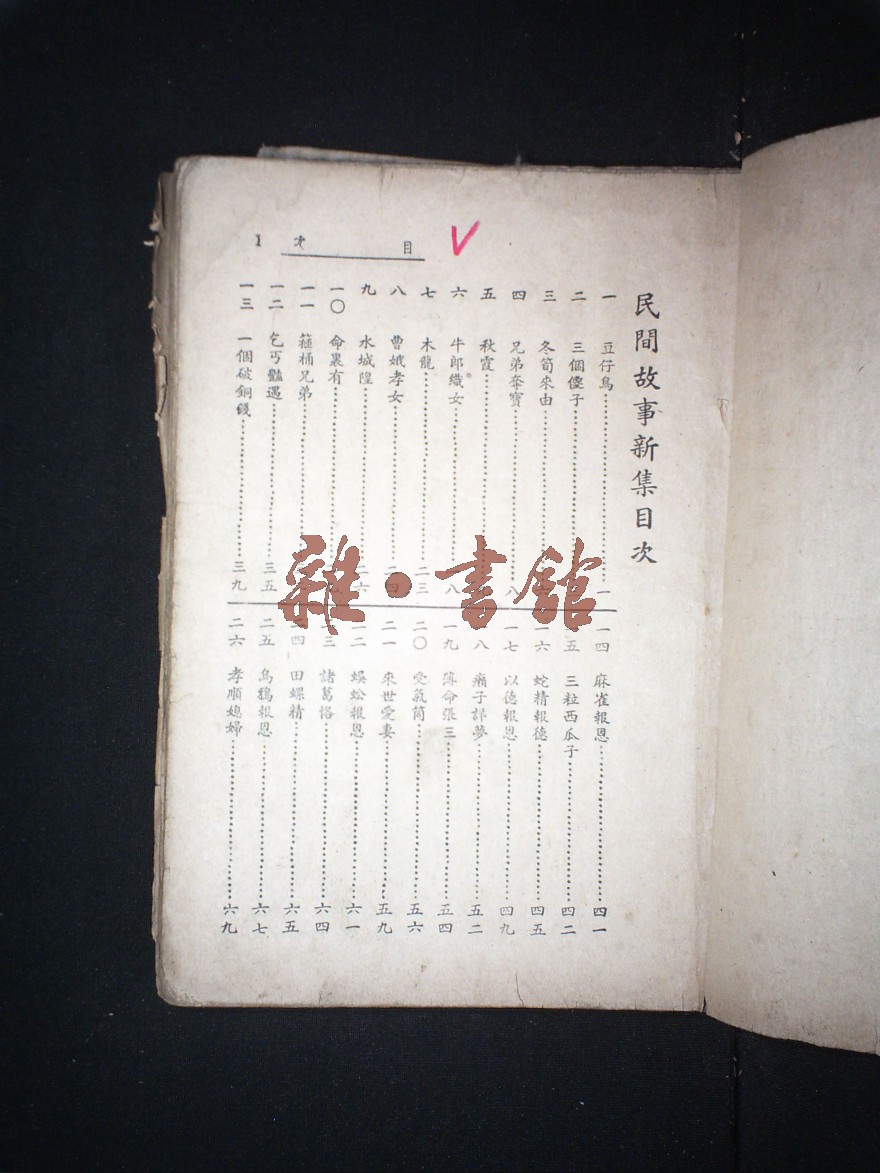 目 次 1
V
民間故事新集目次
一 豆仔鳥 一
二 三個儍子
三 冬筍來由
四 兄弟奪寶 八
五 秋霞
六 牛郎織女 八
七 木龍 二三
八 曹娥孝女 二四
九 水城隍 二六
一〇 命裏有
一一 箍桶兄弟
一二 乞丐豔遇 三五
一三 一個破銅錢 三九
一四 麻雀報恩 四一
一五 三粒西瓜子 四二
一六 蛇精報德 四五
一七 以德報恩 四九
一八 癩子詳夢 五二
一九 薄命張三 五四
二〇 受氣筒 五六
二一 來世愛妻 五九
二二 蜈蚣報恩 六一
二三 諸葛恪 六四
二四 田螺精 六五
二五 烏鴉報恩 六七
二六 孝順媳婦 六九
雜·書館